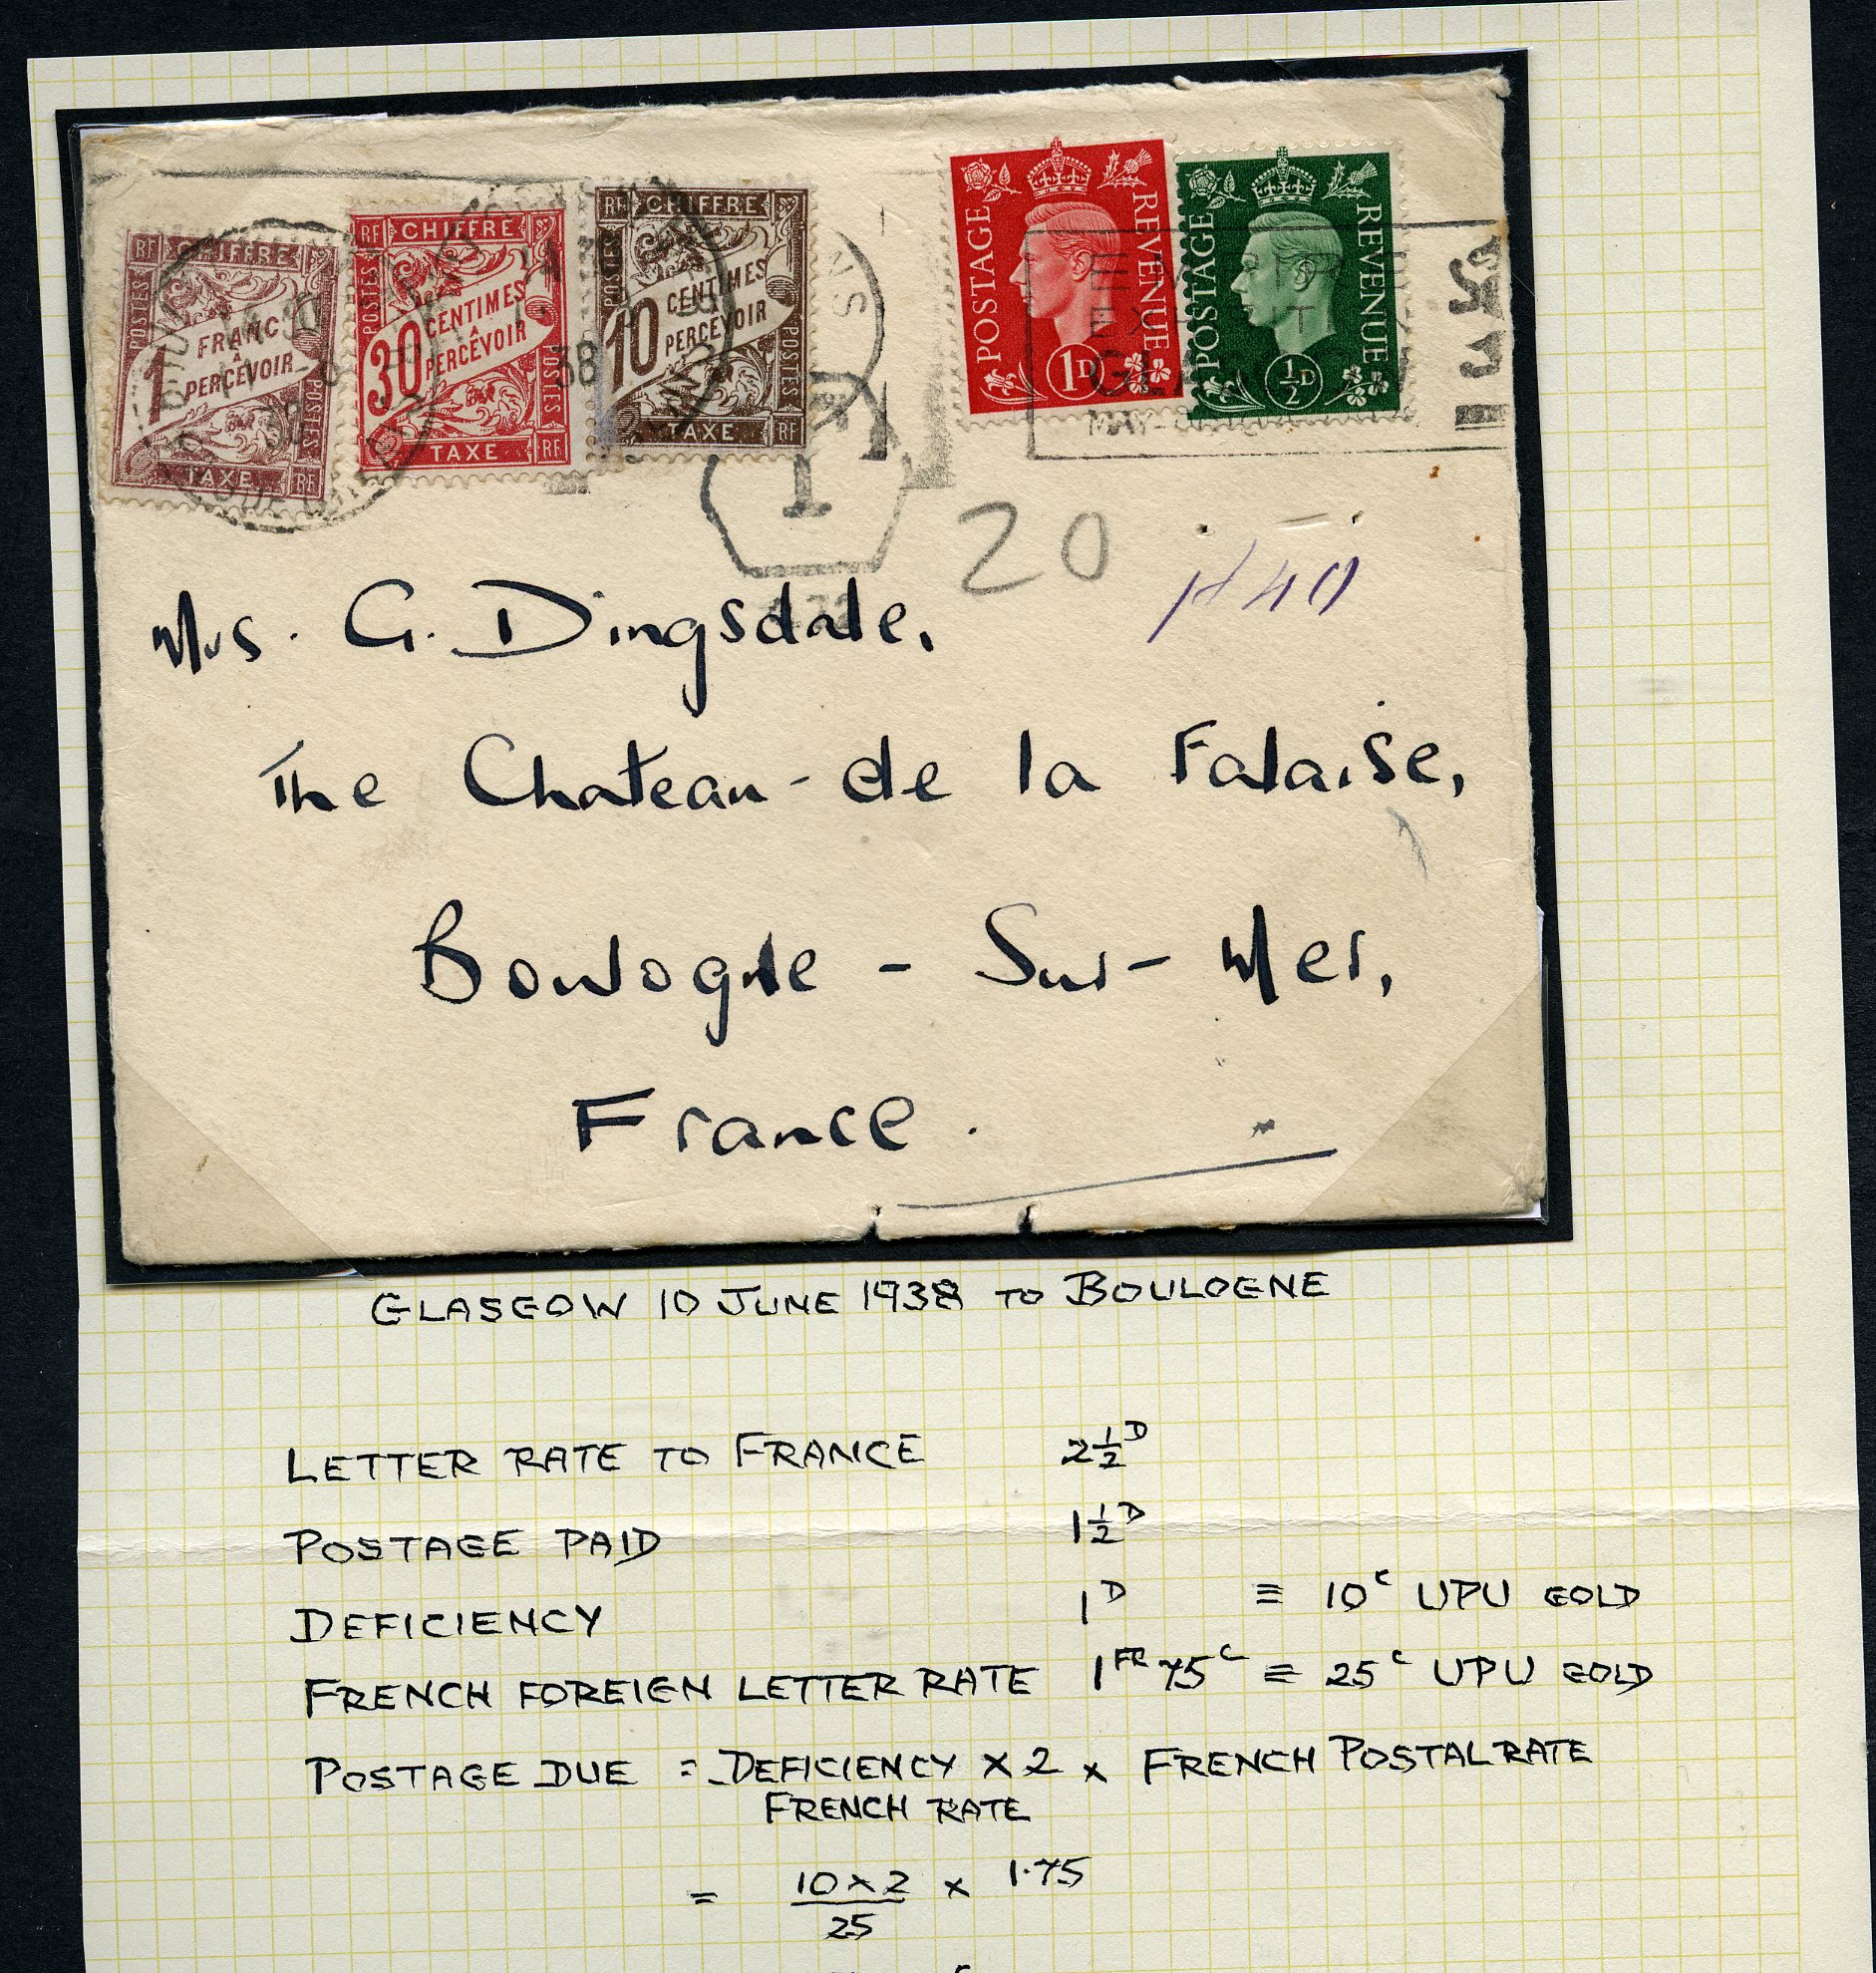 RF CHIFFRE
POSTES
1 FRANC
À
PERCEVOIR
POSTES
TAXE RF
RF CHIFFRE
POSTES
30 CENTIMES
À
PERCEVOIR
POSTES
TAXE RF
RF CHIFFRE
POSTES
10 CENTIMES
À
PERCEVOIR
POSTES
TAXE RF
38
T
POSTAGE REVENUE
1D
POSTAGE REVENUE
½D
MAY-
20
1f40
Mrs. G. Dingsdale,
The Chateau-de la Falaise,
Boulogne - Sur - Mer,
France.
GLASGOW 10 JUNE 1938 TO BOULOGNE
LETTER RATE TO FRANCE 2½D
POSTAGE PAID 1½D
DEFICIENCY 1D ≡ 10c UPU GOLD
FRENCH FOREIGN LETTER RATE 1FR 75c ≡ 25c UPU GOLD
POSTAGE DUE = DEFICIENCY × 2 × FRENCH POSTAL RATE
FRENCH RATE
= 10 × 2 × 1.75
25